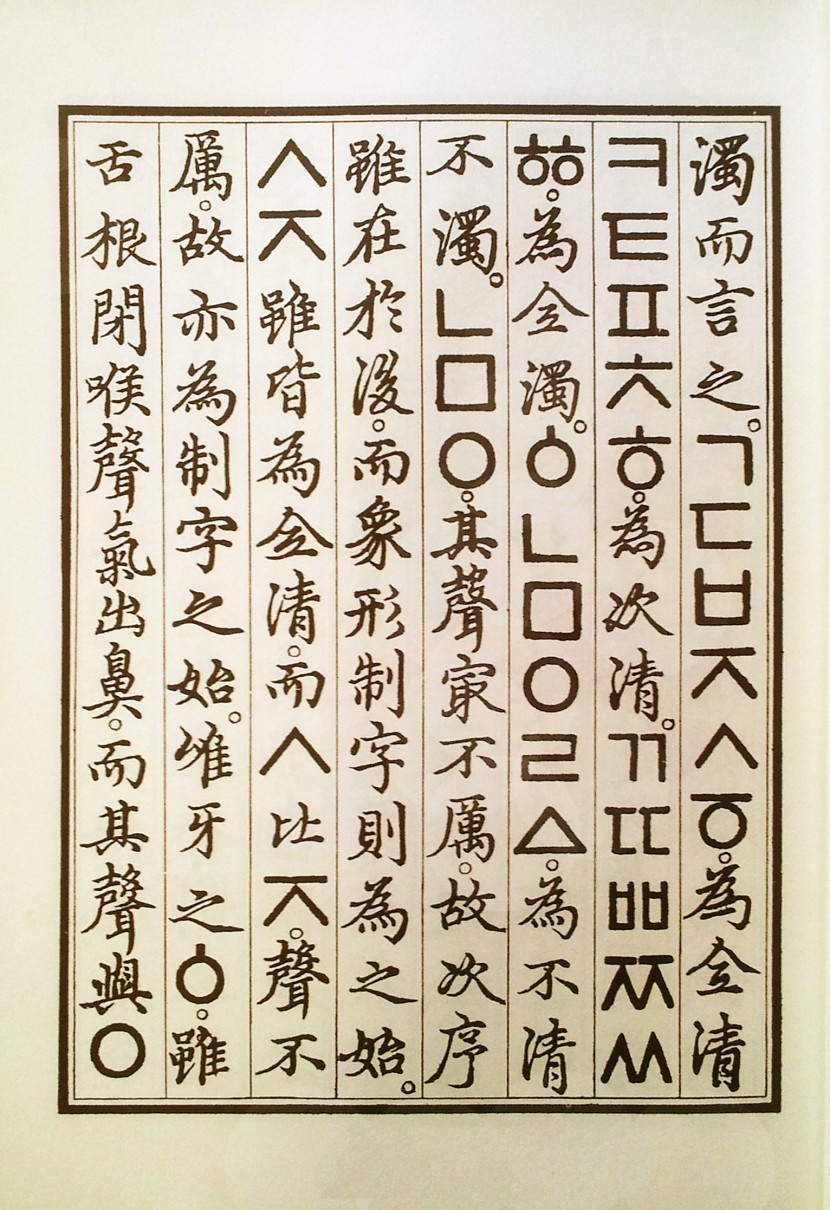 濁而言之。ㄱㄷㅂㅈㅅㆆ。為全清
ㅋㅌㅍㅊㅎ。為次清。ㄲㄸㅃㅉㅆ
ㆅ。為全濁。ㆁㄴㅁㅇㄹㅿ。為不清
不濁。ㄴㅁㅇ。其聲㝡不厲。故次序
雖在於後。而象形制字則為之始。
ㅅㅈ雖皆為全清。而ㅅ比ㅈ。聲不
厲。故亦為制字之始。唯牙之ㆁ。雖
舌根閉喉聲氣出鼻。而其聲與ㅇ